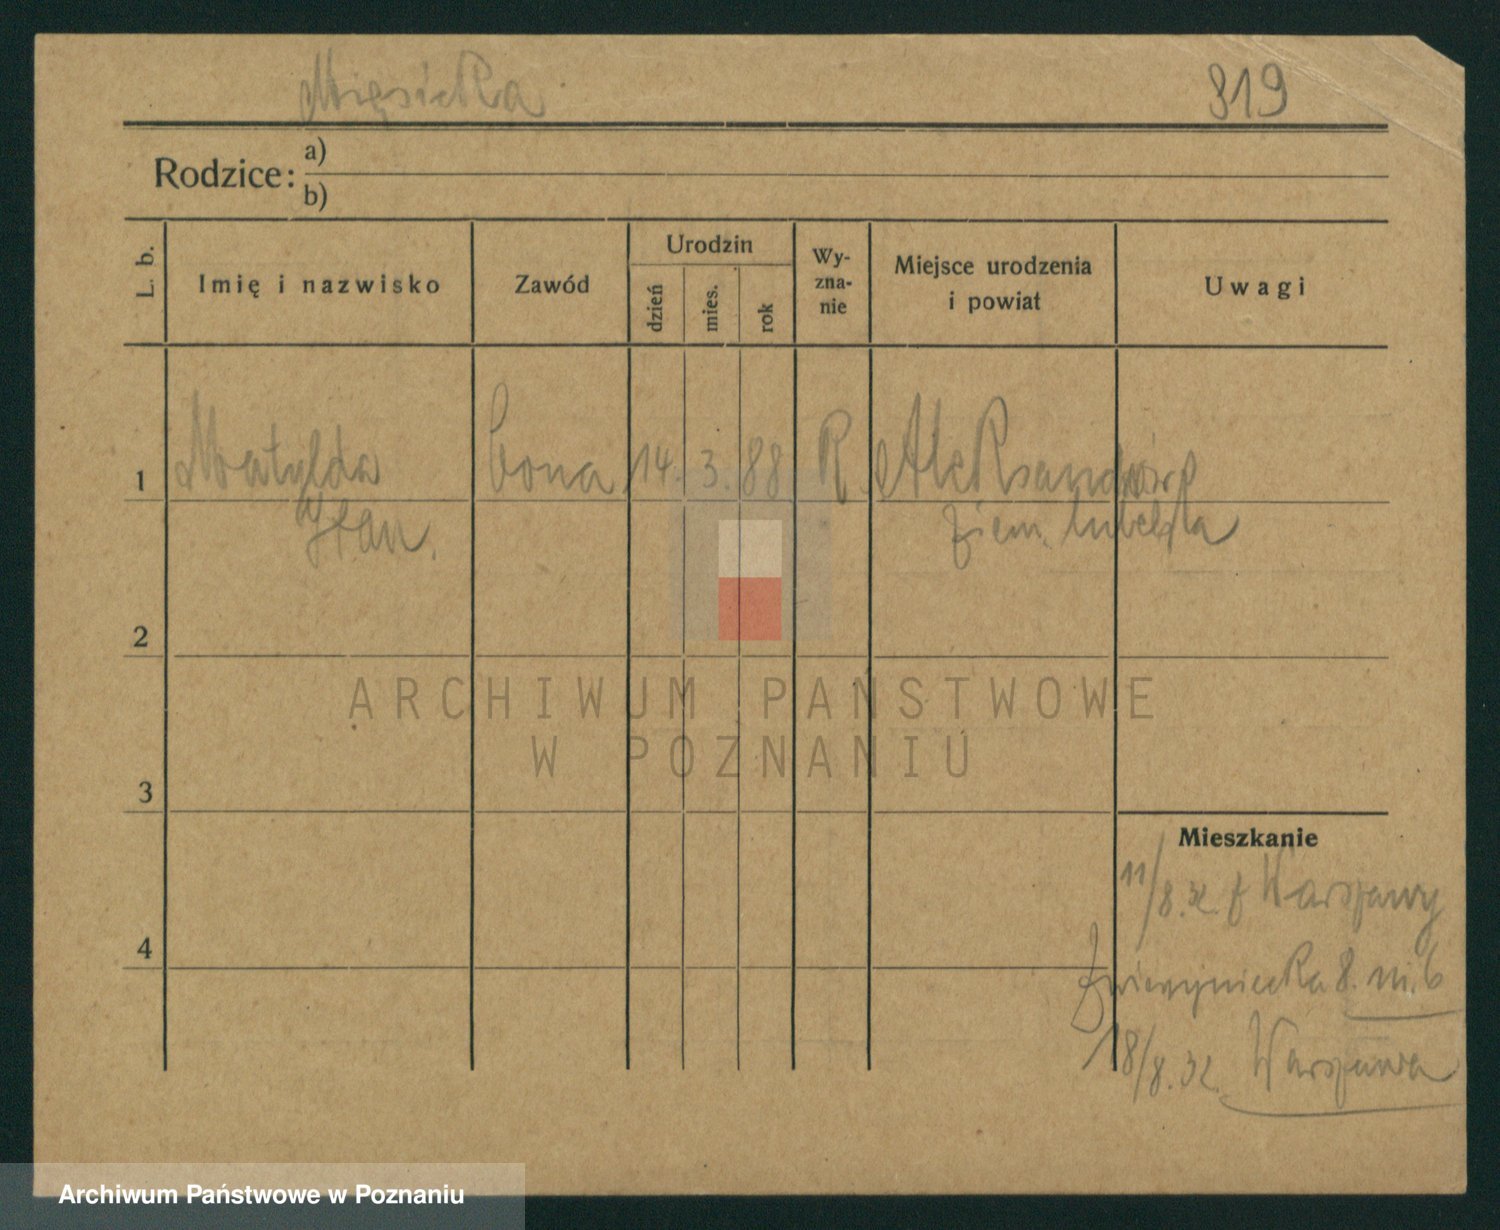 Mięsicka
819
Rodzice:
a)
b)
L. b.
Imię i nazwisko
Zawód
Urodzin
dzień
mies.
rok
Wy-
zna-
nie
Miejsce urodzenia
i powiat
Uwagi
1
Matylda
bona
14. 3. 88
R.
Aleksandrów
ziem. lubelska
2
3
4
ARCHIWUM PAŃSTWOWE
W POZNANIU
Mieszkanie
11/8.32. z Warszawy
Zwierzyniecka 8. m. 6
18/8.32. Warszawa
Archiwum Państwowe w Poznaniu